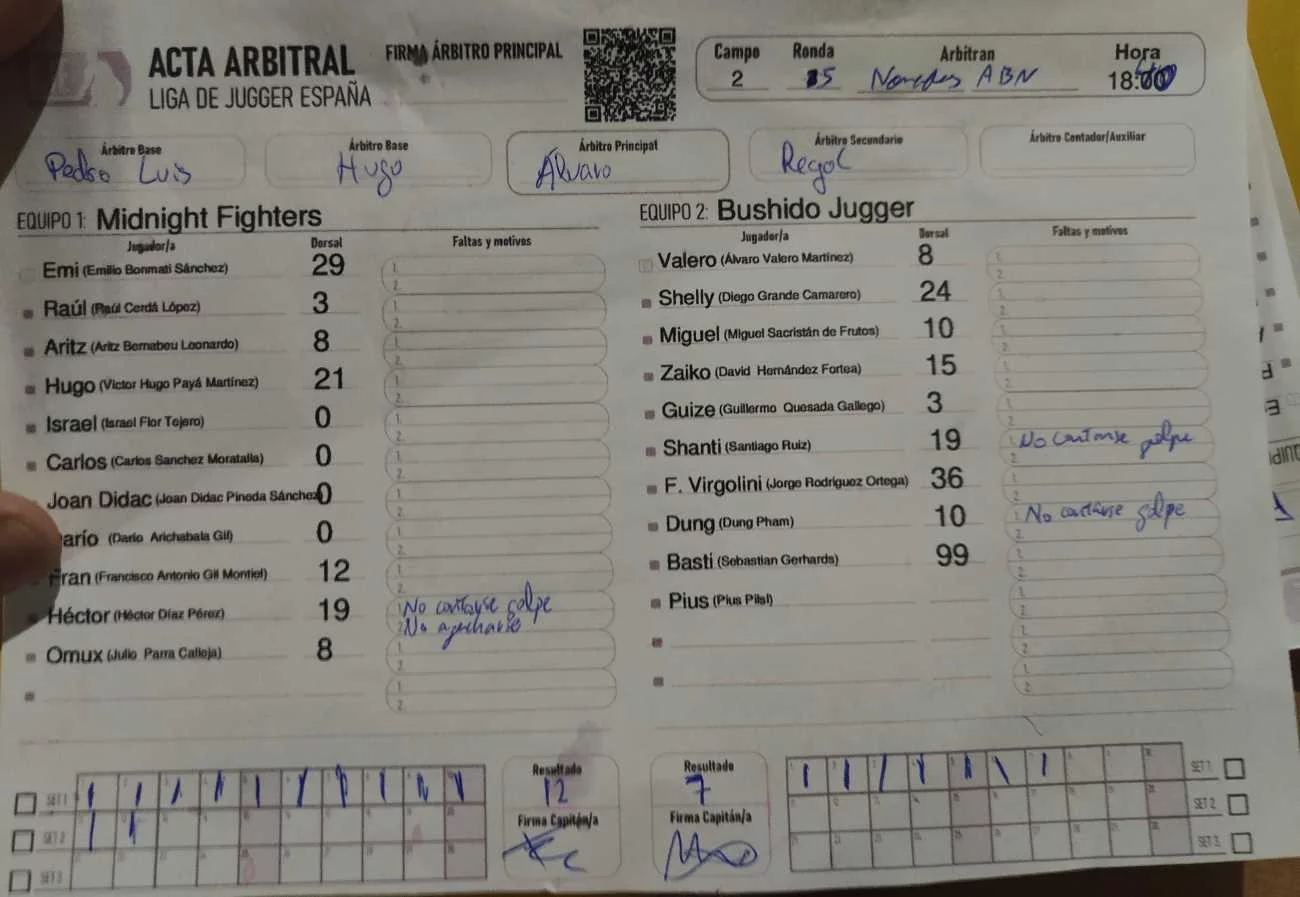 ACTA ARBITRAL
LIGA DE JUGGER ESPAÑA
FIRMA ÁRBITRO PRINCIPAL
Campo Ronda Arbitran Hora
2 15 ABN 18:
Árbitro Base
Pedro Luis
Árbitro Base
Hugo
Árbitro Principal
Álvaro
Árbitro Secundario
Regol
Árbitro Contador/Auxiliar
EQUIPO 1: Midnight Fighters
Jugador/a Dorsal Faltas y motivos
Emi (Emilio Bonmati Sánchez) 29
Raúl (Raúl Cerdá López) 3
Aritz (Aritz Bernabeu Leonardo) 8
Hugo (Victor Hugo Payá Martínez) 21
Israel (Israel Flor Tejero) 0
Carlos (Carlos Sanchez Moratalla) 0
Joan Didac (Joan Didac Pineda Sánchez) 0
arío (Darío Arichabala Gil) 0
Fran (Francisco Antonio Gil Montiel) 12
Héctor (Héctor Díaz Pérez) 19 1. No contarse golpe
2. No
Omux (Julio Parra Calleja) 8
EQUIPO 2: Bushido Jugger
Jugador/a Dorsal Faltas y motivos
Valero (Álvaro Valero Martínez) 8
Shelly (Diego Grande Camarero) 24
Miguel (Miguel Sacristán de Frutos) 10
Zaiko (David Hernández Fortea) 15
Guize (Guillermo Quesada Gallego) 3
Shanti (Santiago Ruiz) 19 1. No contarse golpe
F. Virgolini (Jorge Rodríguez Ortega) 36
Dung (Dung Pham) 10 1. No contarse golpe
Basti (Sebastian Gerhards) 99
Pius (Pius Pilsl)
SET 1
SET 2
SET 3
Resultado
12
Firma Capitán/a
Resultado
7
Firma Capitán/a
SET 1
SET 2
SET 3